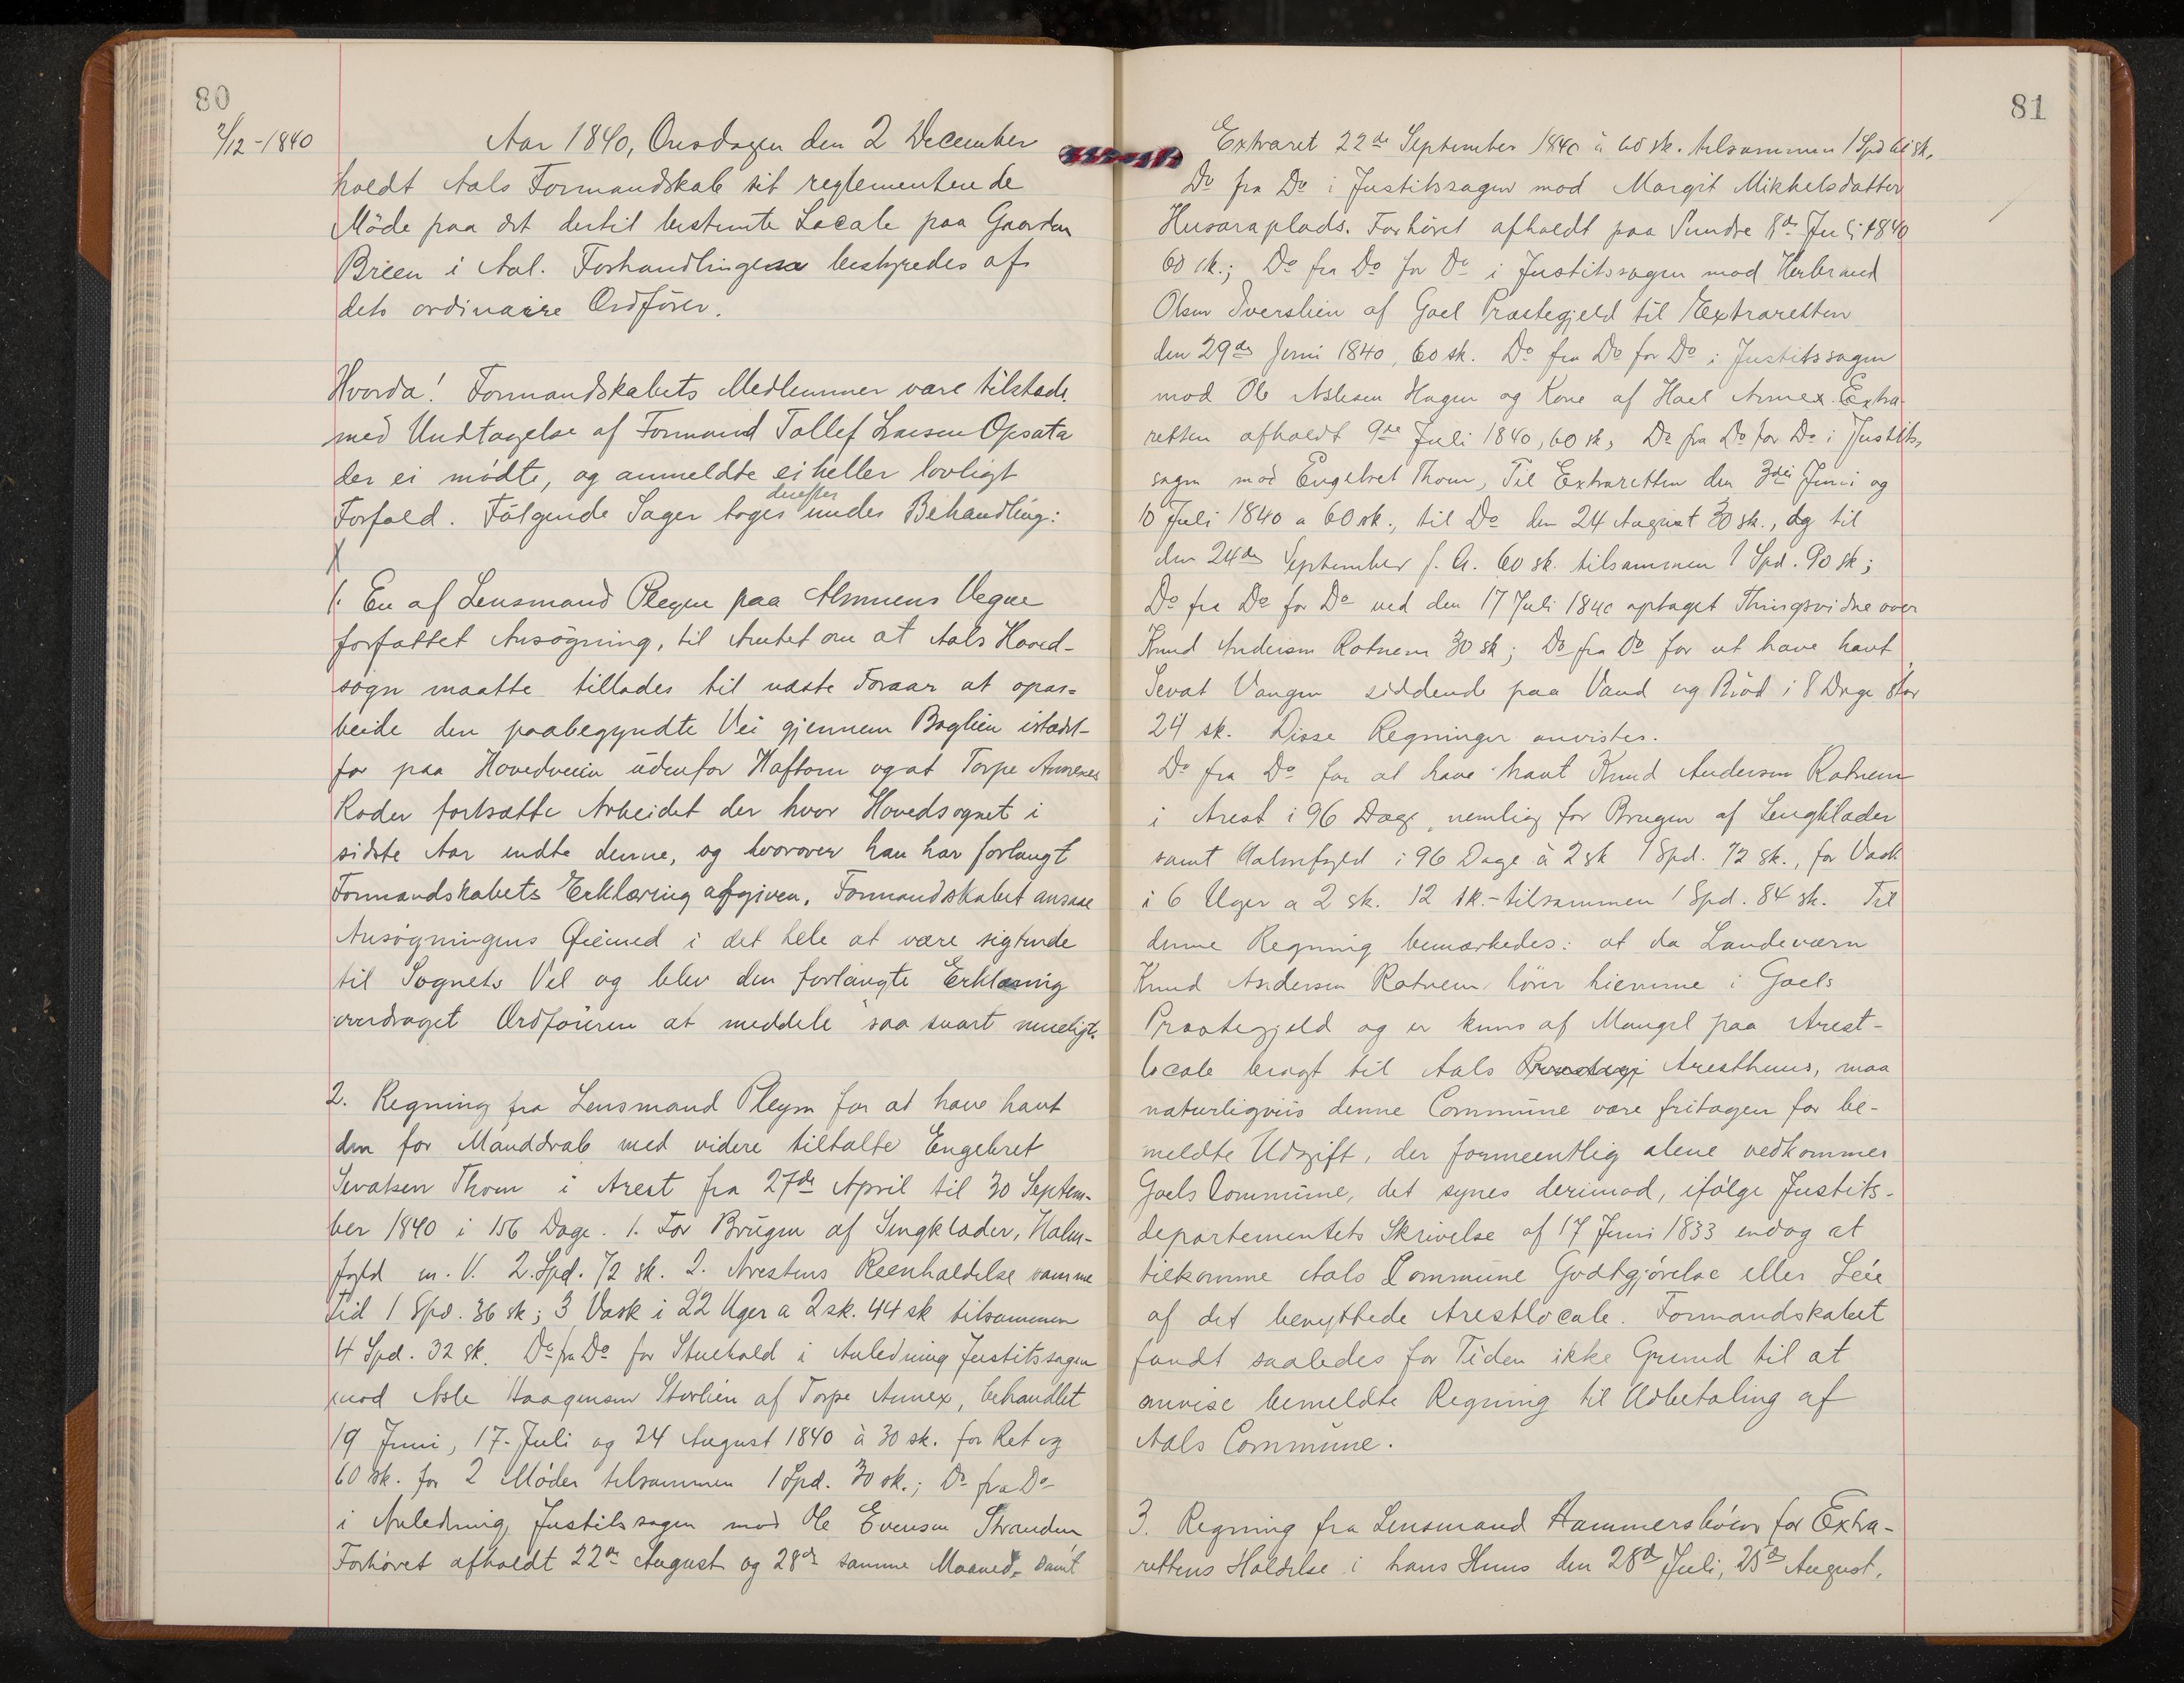 80
2/12-1840
Aar 1840, Onsdagen den 2 December
holdt Aals Formandskab sit reglementerede
Möde paa det dertil bestemte Locale paa Gaarden
Breen i Aal. Forhandlingerne bestyredes af
dets ordinaire Ordförer.
Hvorda! Formandskabets Medlemmer vare tilstede
med Undtagelse af Formand Tollef Larsen Opsata
der ei mödte, og anmeldte ei heller lovligt
Forfald. Fölgende Sager toges derefter under Behandling:
1. En af Lensmand Pleym paa Almuens Vegne
forfattet Ansögning, til Amtet om at Aals Hoved-
sogn maatte tillades til næste Foraar at opar-
beide den paabegyndte Vei gjennem Baglien istædet-
for paa Hovedveien udenfor Haftorn og at Torpe Annexes
Roder fortsatte Arbeidet der hvor Hovedsognet i
sidste Aar endte denne, og hvorover han har forlangt
Formandskabets Erklæring afgiven. Formandskabet ansaae
Ansögningens Øiemed i det hele at være sigtende
til Sognets Vel og blev den forlangte Erklæring
overdraget Ordföreren at meddele saa snart mueligt.
2. Regning fra Lensmand Pleym for at have havt
den for Manddrab med videre tiltalte Engebret
Sevatsen Thom i Arest fra 27de April til 30 Septem-
ber 1840 i 156 Dage. 1. For Brugen af Sengklæder, Halm-
fyld m. V. 2 Spd. 72 sk. 2. Arestens Reenholdelse samme
tid 1 Spd. 36 sk; 3 Vask i 22 Uger a 2 sk. 44 sk tilsammen
4 Spd. 32 sk. Do fra Do for Stuehold i Anledning Justitssagen
mod Asle Haagensen Storlien af Torpe Annex, behandlet
19 Juni, 17. Juli og 24 August 1840 à 30 sk. for Ret og
60 sk. for 2 Möder tilsammen 1 Spd. 30 sk.; Do fra Do
i Anledning Justitssagen mod Ole Evensen Stranden
Forhöret afholdt 22de August og 28de samme Maaned, samt
81
Extraret 22de September 1840 à 60 sk. tilsammen 1 Spd 60 sk.
Do fra Do i Justitssagen mod Margit Mikkelsdatter
Husaraplads. Forhöret afholdt paa Sundre 8de Juli 1840
60 sk.; Do fra Do for Do i Justitssagen mod Herbrand
Olsen Iverslien af Goel Præstegjeld til Extraretten
den 29de Juni 1840, 60 sk. Do fra Do for Do i Justitssagen
mod Ole Aslesen Hagen og Kone af Hoel Annex Extra-
retten afholdt 9de Juli 1840, 60 sk, Do fra Do for Do i Justits-
sagen mod Engebret Thom, Til Extraretten den 3die Juni og
10 Juli 1840 a 60 sk., til Do den 24 August 30 sk., og til
den 24de September f. A. 60 sk. tilsammen 1 Spd. 90 sk;
Do fra Do for Do ved den 17 Juli 1840 optaget Thingsvidne over
Knud Andersen Rotnem 30 sk; Do fra Do for at have havt
Sevat Vangen siddende paa Vand og Bröd i 8 Dage
24 sk. Disse Regninger anvistes.
Do fra Do for at have havt Knud Andersen Rotnem
i Arest i 96 Dage, nemlig for Brugen af Sengklæder
samt Halmfyld i 96 Dage à 2 sk 1 Spd. 72 sk., for Vask
i 6 Uger a 2 sk. 12 sk.- tilsammen 1 Spd. 84 sk. Til
denne Regning bemærkedes: at da Landeværn
Knud Andersen Rotnem hörer hiemme i Goels
Præstegjeld og er kuns af Mangel paa Arest-
locale bragt til Aals Arresthuus, maa
naturligviis denne Commüne være fritagen for be-
meldte Udgift, der formeentlig alene vedkommer
Goels Commüne, det synes derimod, ifölge Justits-
departementets Skrivelse af 17 Juni 1833 endog at
tilkomme Aals Commüne Godtgjörelse eller Leie
af det benyttede Arestlocale. Formandskabet
fandt saaledes for Tiden ikke Grund til at
anvise bemeldte Regning til Udbetaling af
Aals Commüne.
3. Regning fra Lensmand Hammersböen for Extra-
rettens Holdelse i hans Huus den 28de Juli, 25de August,